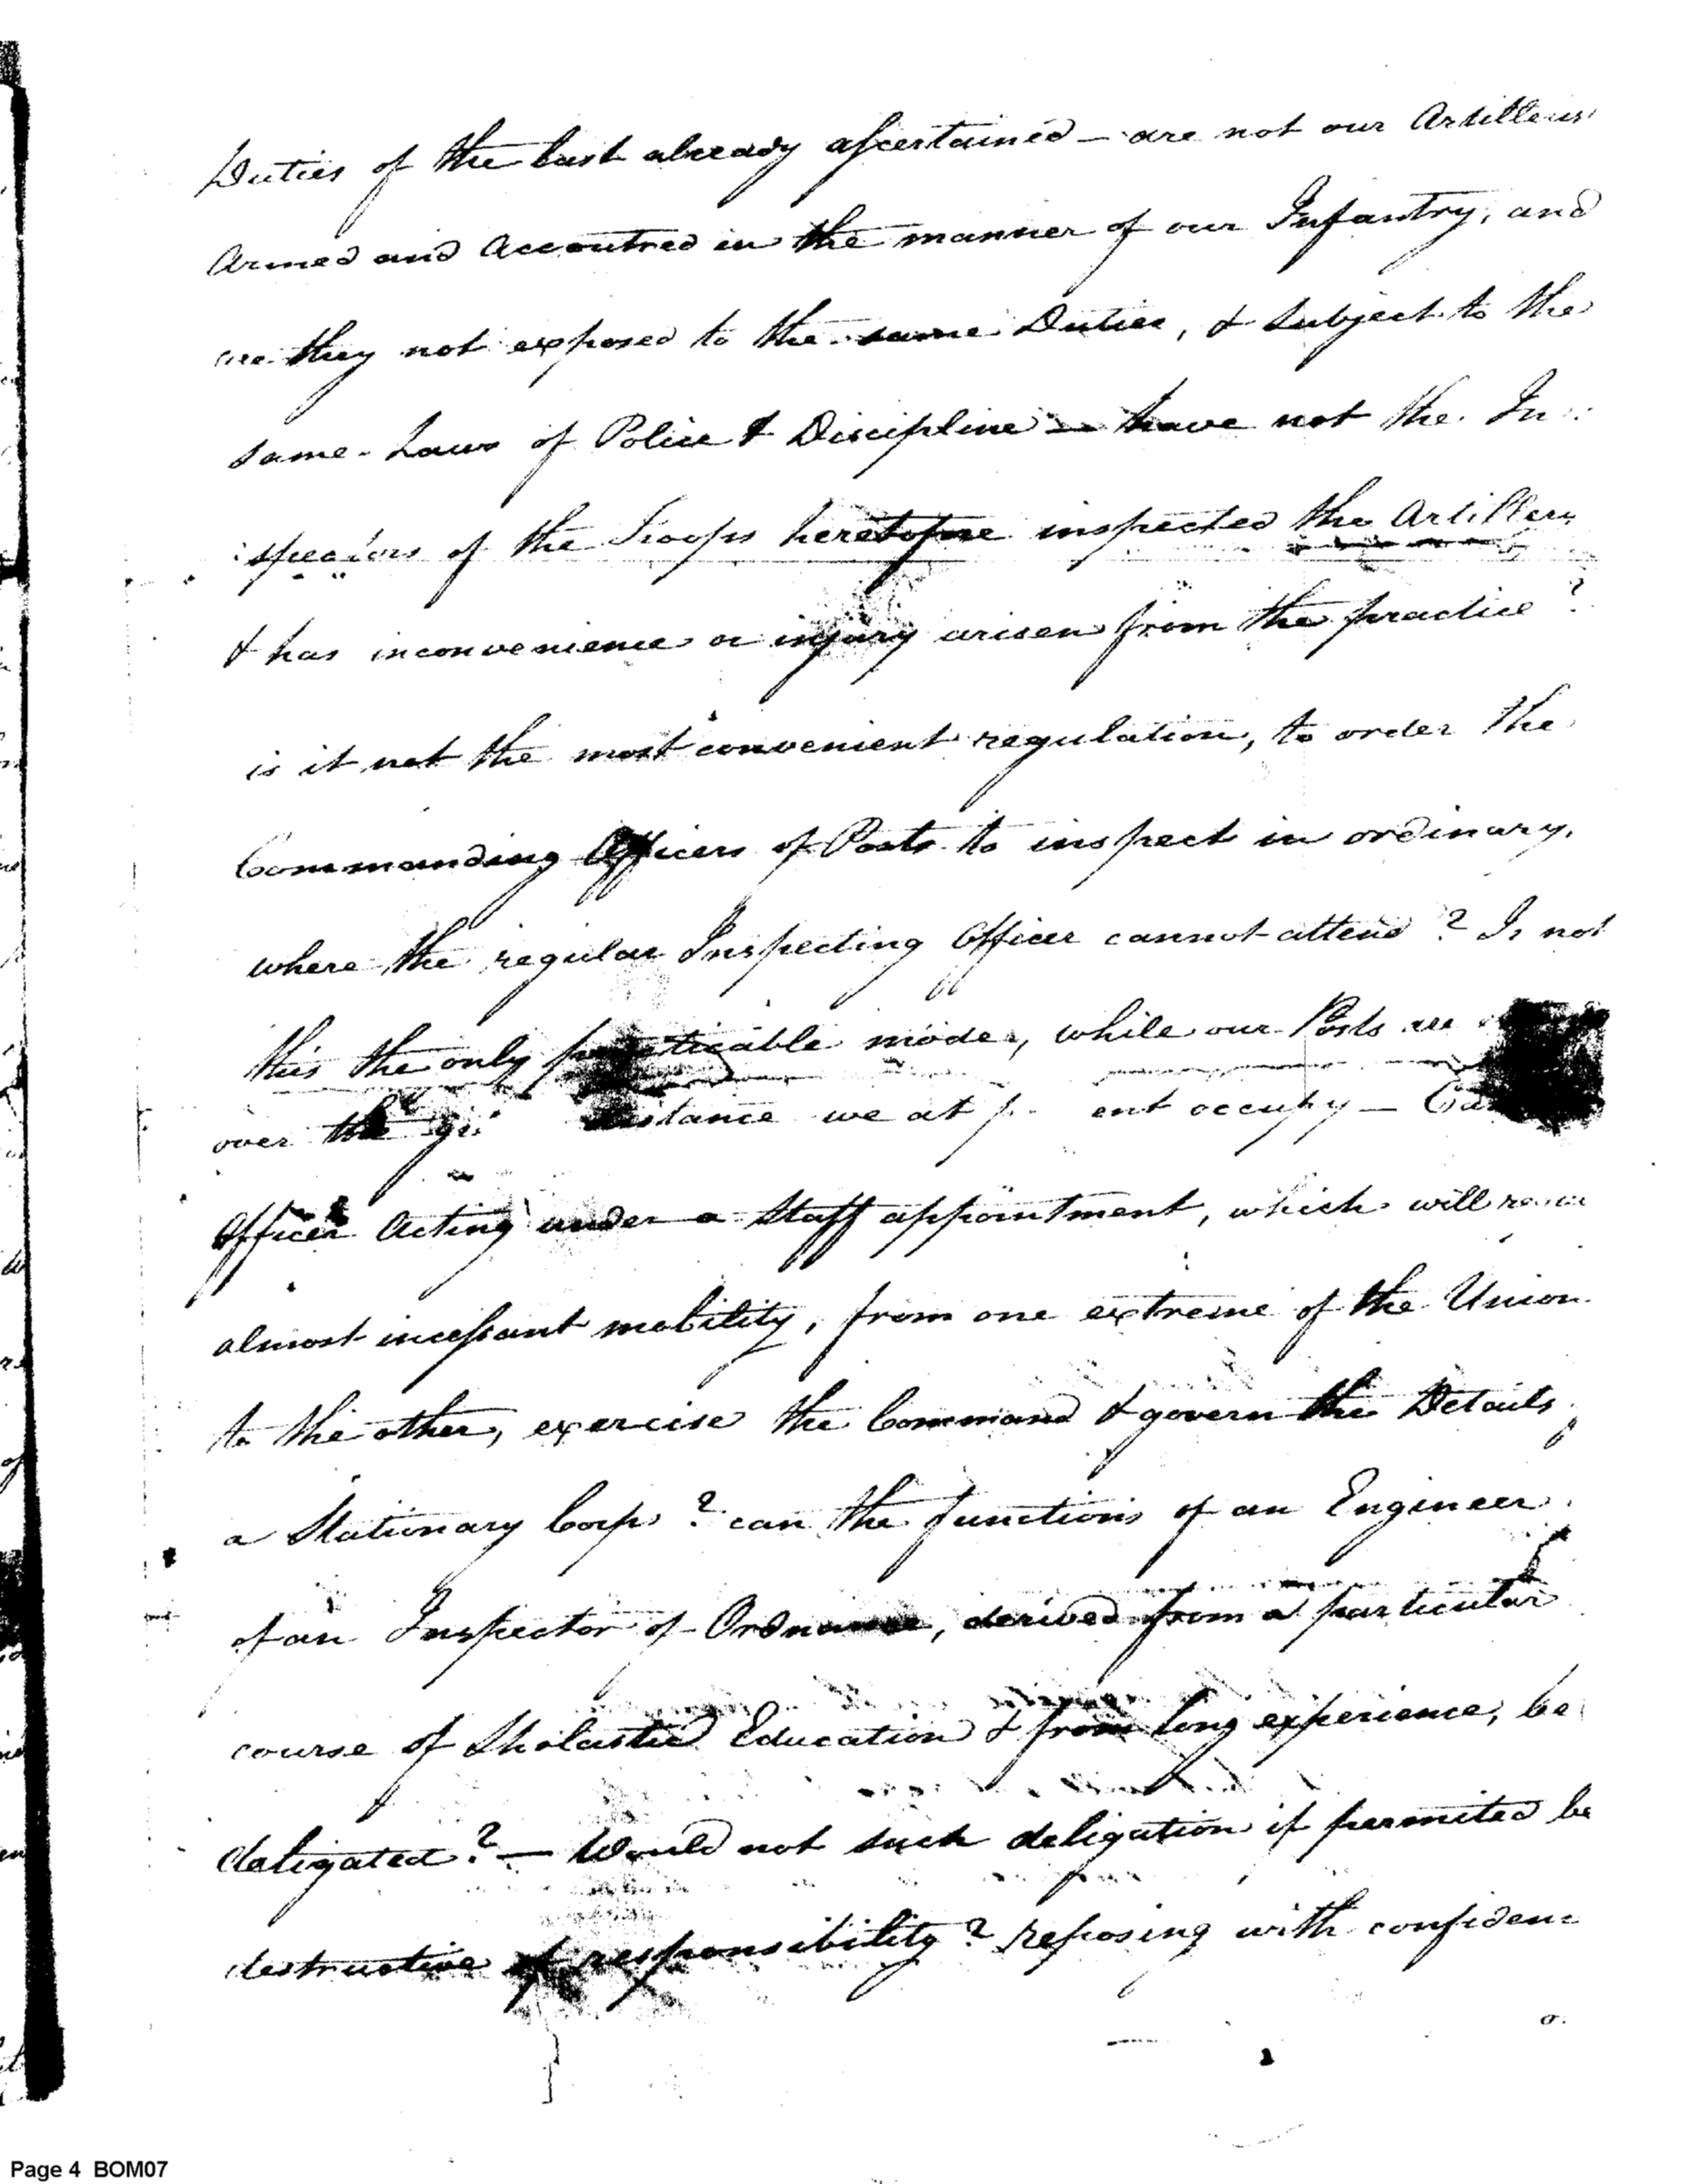 Duties of the last already ascertained — are not our Artillerists
Armed and Accoutred in the manner of our Infantry, and
are they not exposed to the same Duties, & subject to the
same Laws of Police & Discipline — have not the In:
:spectors of the Troops heretofore inspected the Artillery
& has inconvenience or injury arisen from the practice?
is it not the most convenient regulation, to order the
Commanding Officers of Posts to inspect in ordinary,
where the regular Inspecting Officer cannot attend? Is not
this the only practicable mode, while our Posts are
over the distance we at present occupy —
Officer Acting under a Staff appointment, which will
almost incessant mobility, from one extreme of the Union
to the other, exercise the Command & govern the Details
a Stationary Corps? can the functions of an Engineer
of an Inspector of Ordnance, derived from a particular
course of Sholastic Education & from long experience, be
deligated? — Would not such deligation if permited be
destructive of responsibility? reposing with confidenc
Page 4 BOM07